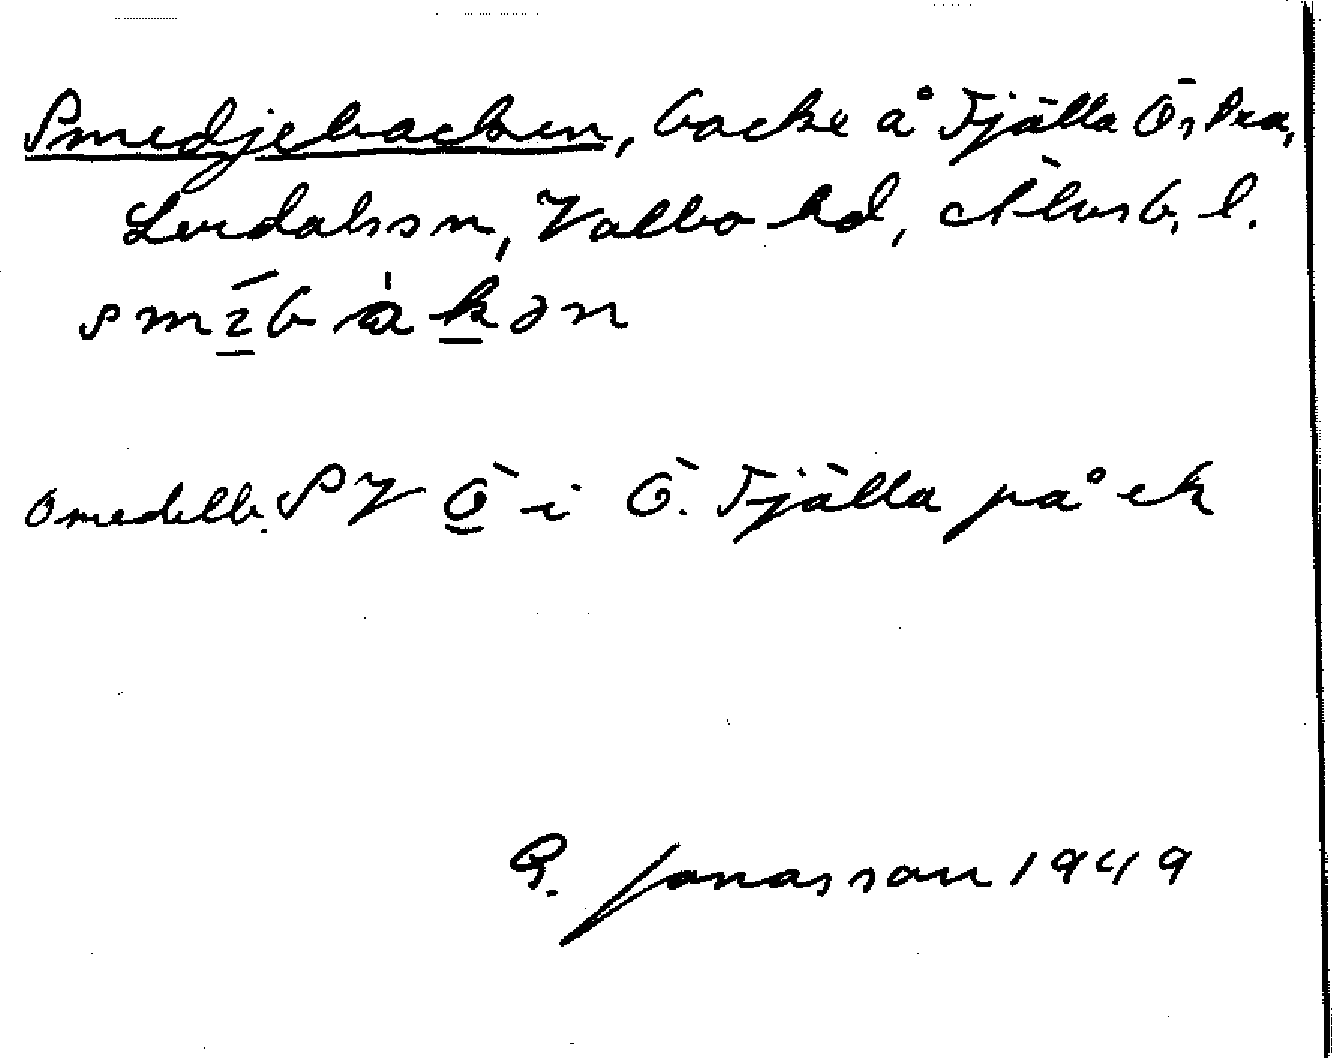 Smedjebacken, backe å Fjälla Östra,
Lerdals sn, Valbo hd, Älvsb. l.
smī̲bàk̲ən
Omedelb. SV Ö̲ i Ö. Fjälla på ek
G. Jonasson 1949